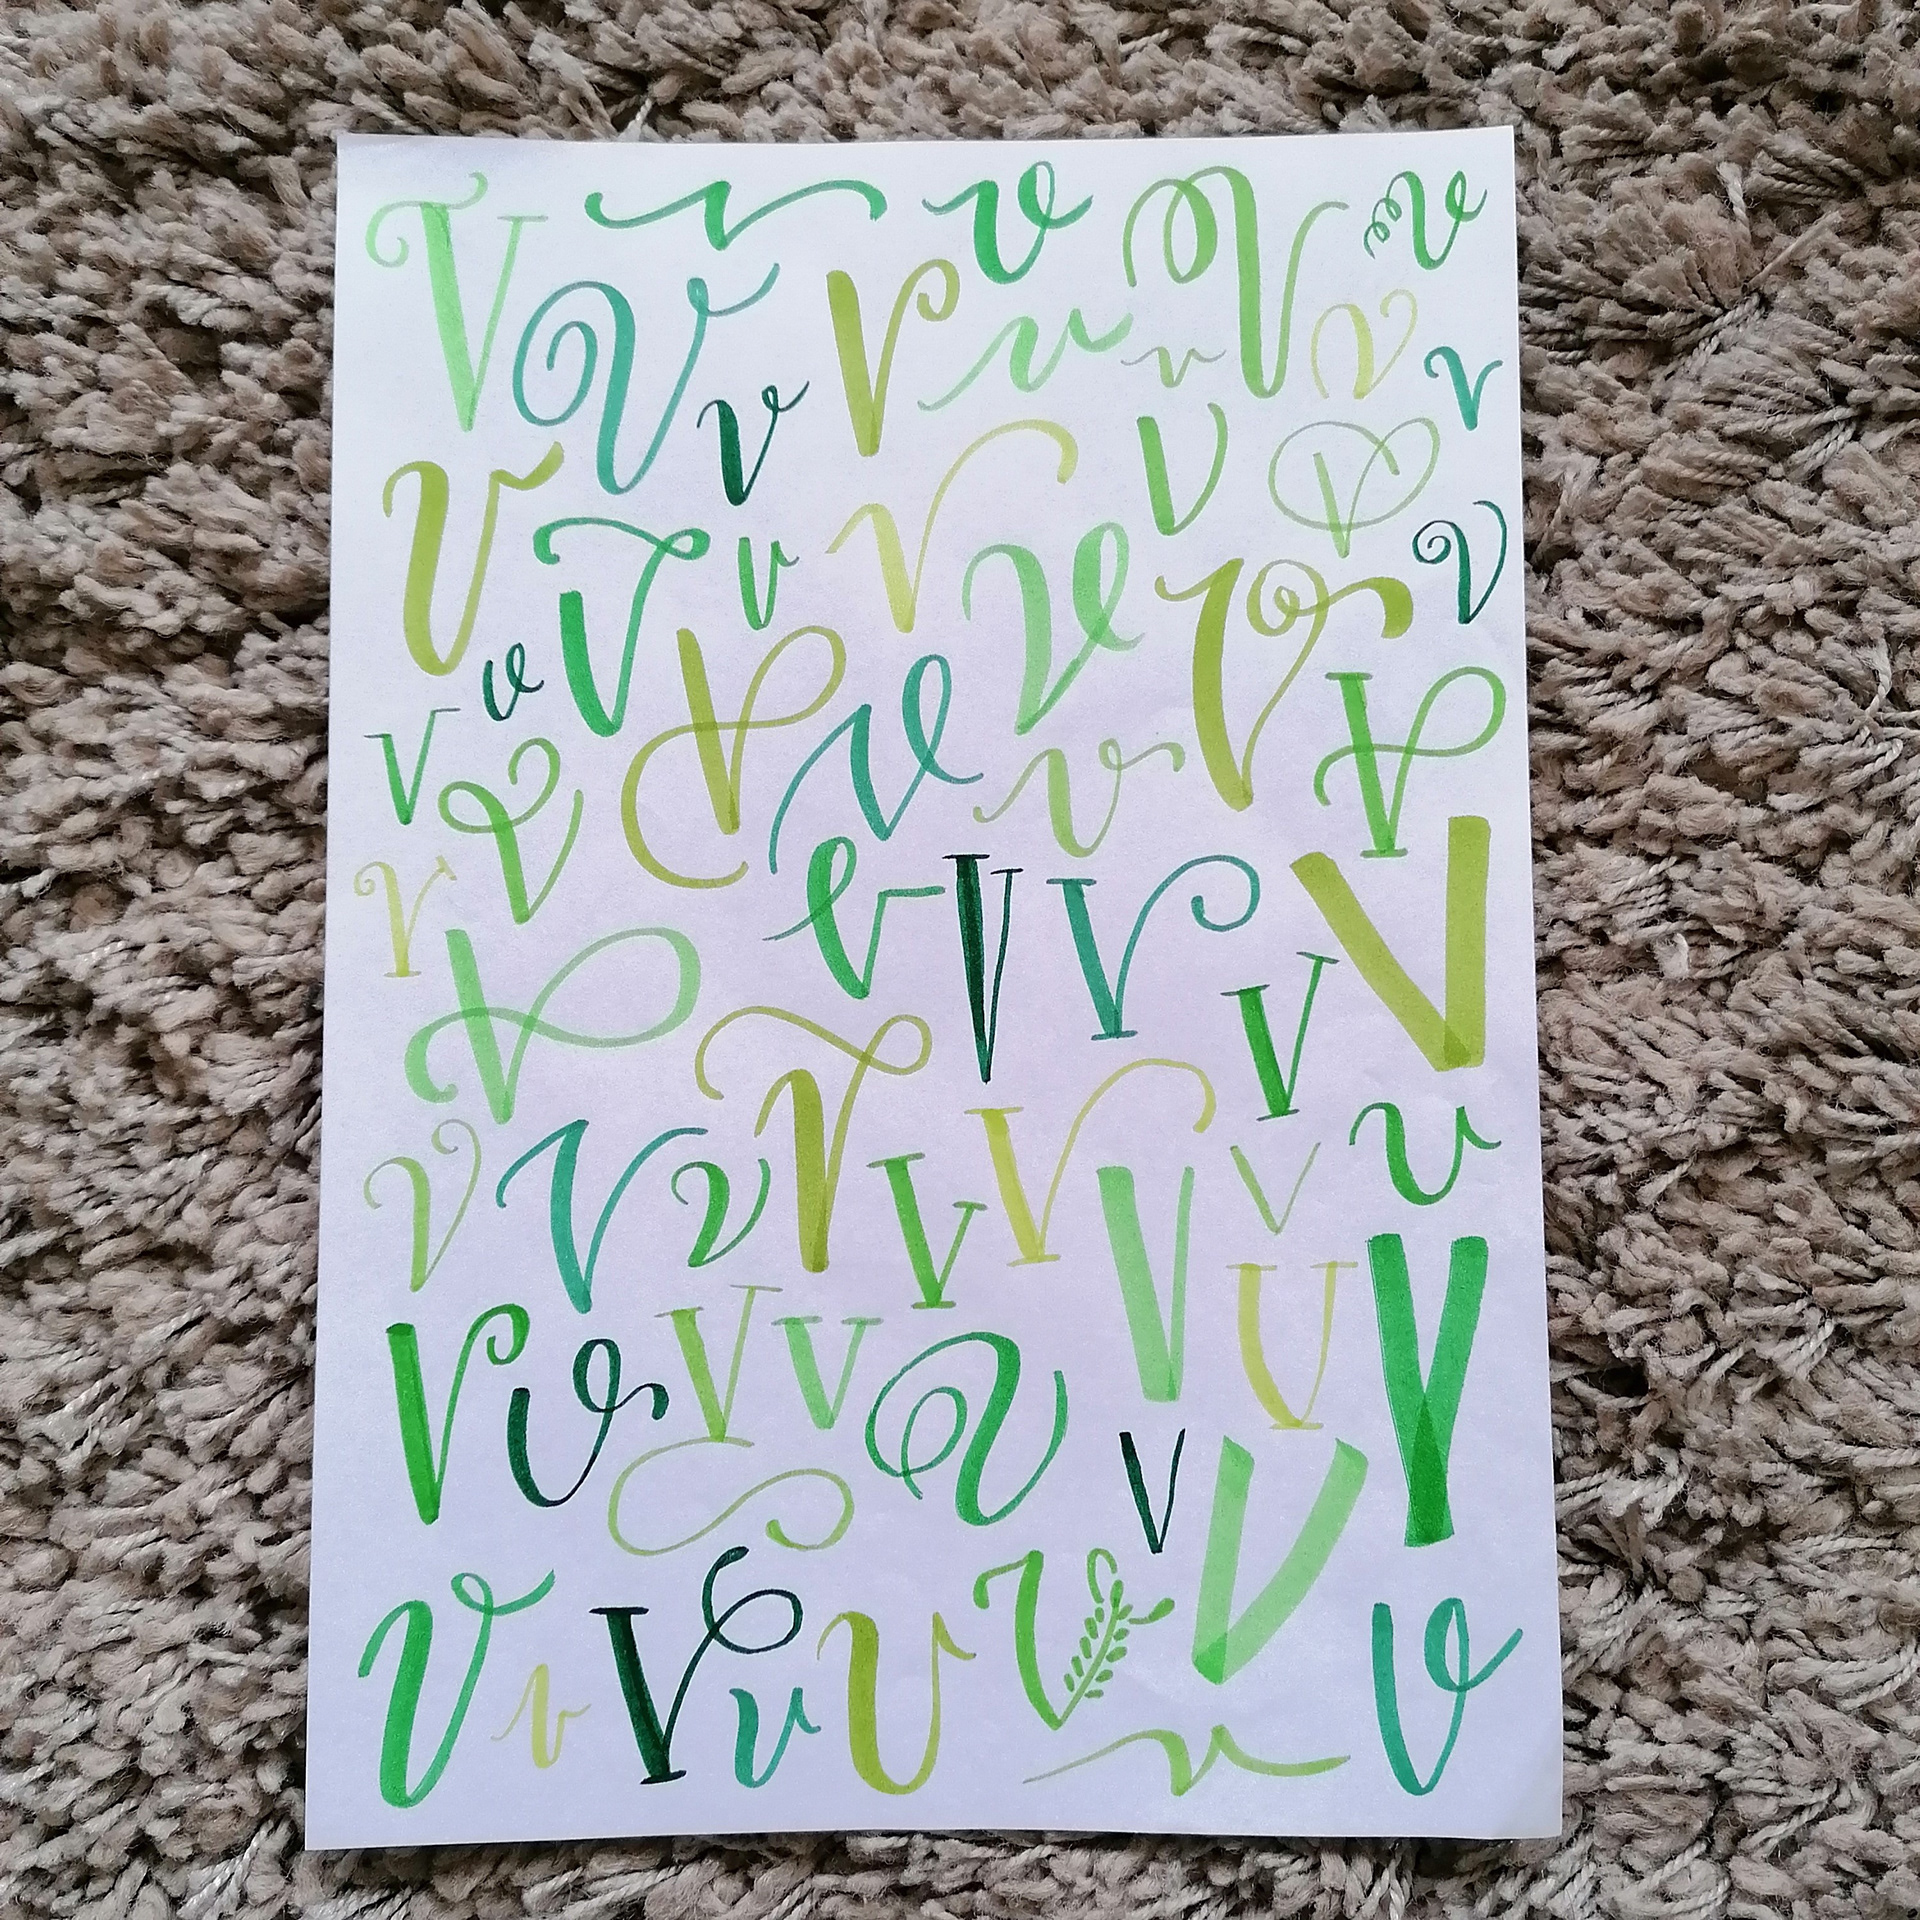 V v v V v
V V v v v v
v V V V v
V V v V V V v
v V V v v V V
v V v V V V V
V V V V
v V v V V V V v v
V v V v V V U V
V v V v V V v V v